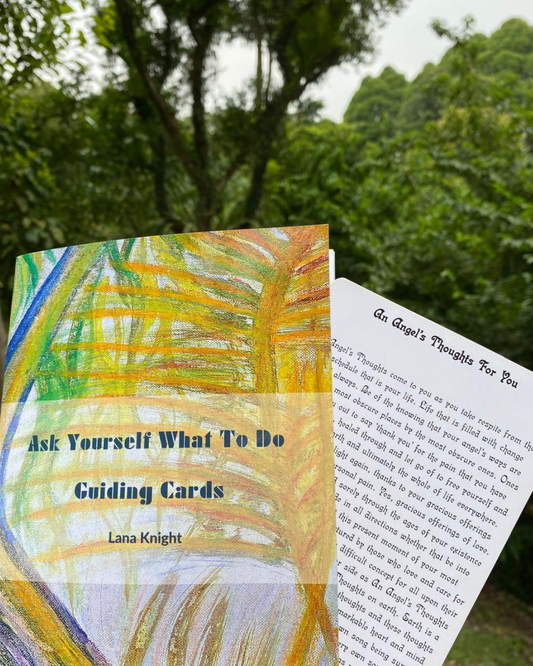 Ask Yourself What To Do
Guiding Cards
Lana Knight
An Angel's Thoughts For You
Angel's Thoughts come to you as you take respite from the
schedule that is your life. Life that is filled with change
always. Be of the knowing that your angel's ways are
most obscure places by the most obscure ones. Ones
out to say thank you for the pain that you have
healed through and let go of to free yourself and
and ultimately the whole of life everywhere.
again, thanks to your gracious offerings
personal pain. Yes, gracious offerings of love.
sorely through the ages of your existence
in all directions whether that be into
this present moment of your most
by those who love and care for
difficult concept for all upon their
side as An Angel's Thoughts
Thoughts on earth. Earth is a
thoughts and these thoughts
remarkable heart and mind
own song being sung
very own